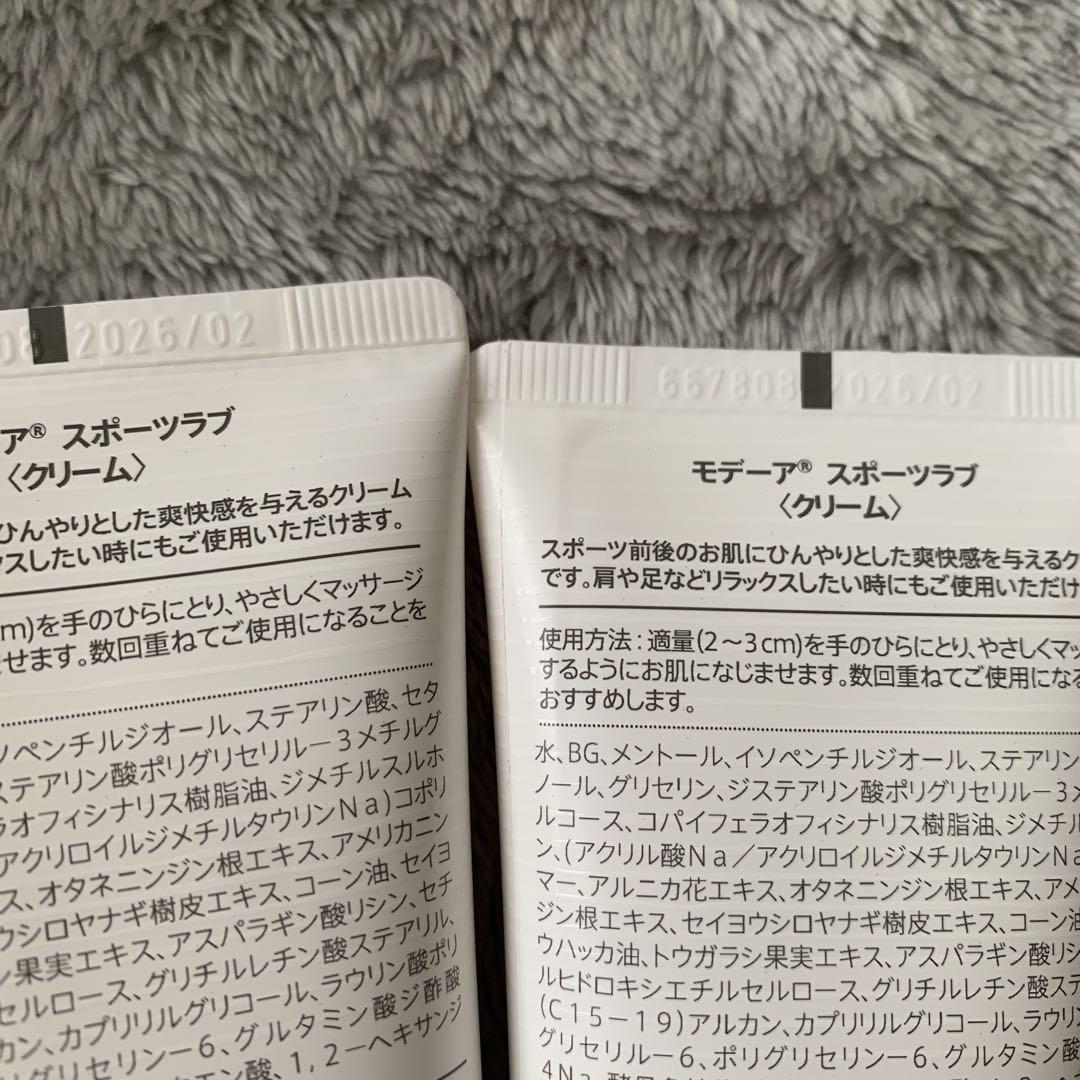 08 2026/02
ア® スポーツラブ
〈クリーム〉
ひんやりとした爽快感を与えるクリーム
クスしたい時にもご使用いただけます。
cm)を手のひらにとり、やさしくマッサージ
ませます。数回重ねてご使用になることを
ソペンチルジオール、ステアリン酸、セタ
ステアリン酸ポリグリセリル－3メチルグ
ラオフィシナリス樹脂油、ジメチルスルホ
アクリロイルジメチルタウリンNa)コポリ
ス、オタネニンジン根エキス、アメリカニン
ウシロヤナギ樹皮エキス、コーン油、セイヨ
シ果実エキス、アスパラギン酸リシン、セチ
セルロース、グリチルレチン酸ステアリル、
カン、カプリリルグリコール、ラウリン酸ポリ
グリセリン－6、グルタミン酸ジ酢酸
エン酸、1, 2－ヘキサンジ
667808 2026/02
モデーア® スポーツラブ
〈クリーム〉
スポーツ前後のお肌にひんやりとした爽快感を与えるク
です。肩や足などリラックスしたい時にもご使用いただけ
使用方法：適量(2～3cm)を手のひらにとり、やさしくマッ
するようにお肌になじませます。数回重ねてご使用になる
おすすめします。
水、BG、メントール、イソペンチルジオール、ステアリン
ノール、グリセリン、ジステアリン酸ポリグリセリル－3メ
ルコース、コパイフェラオフィシナリス樹脂油、ジメチル
ン、(アクリル酸Na／アクリロイルジメチルタウリンNa
マー、アルニカ花エキス、オタネニンジン根エキス、アメ
ジン根エキス、セイヨウシロヤナギ樹皮エキス、コーン油
ウハッカ油、トウガラシ果実エキス、アスパラギン酸リシ
ルヒドロキシエチルセルロース、グリチルレチン酸ステ
(C15－19)アルカン、カプリリルグリコール、ラウリン
グリセリル－6、ポリグリセリン－6、グルタミン酸
4Na